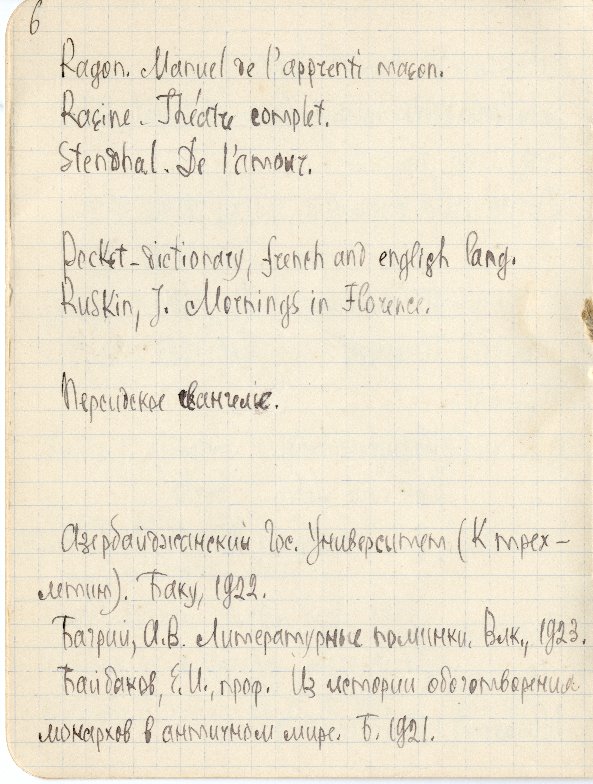 6
Ragon. Manuel de l'apprenti maçon.
Racine. Théâtre complet.
Stendhal. De l'amour.
Pocket-dictionary, french and english lang.
Ruskin, J. Mornings in Florence.
Персидское евангеліе.
Азербайджанский Гос. Университет (К трех-
летию). Баку, 1922.
Багрий, А.В. Литературные поминки. Влк., 1923.
Байбаков, Е.И., проф. Из истории обоготворения
монархов в античном мире. Б. 1921.